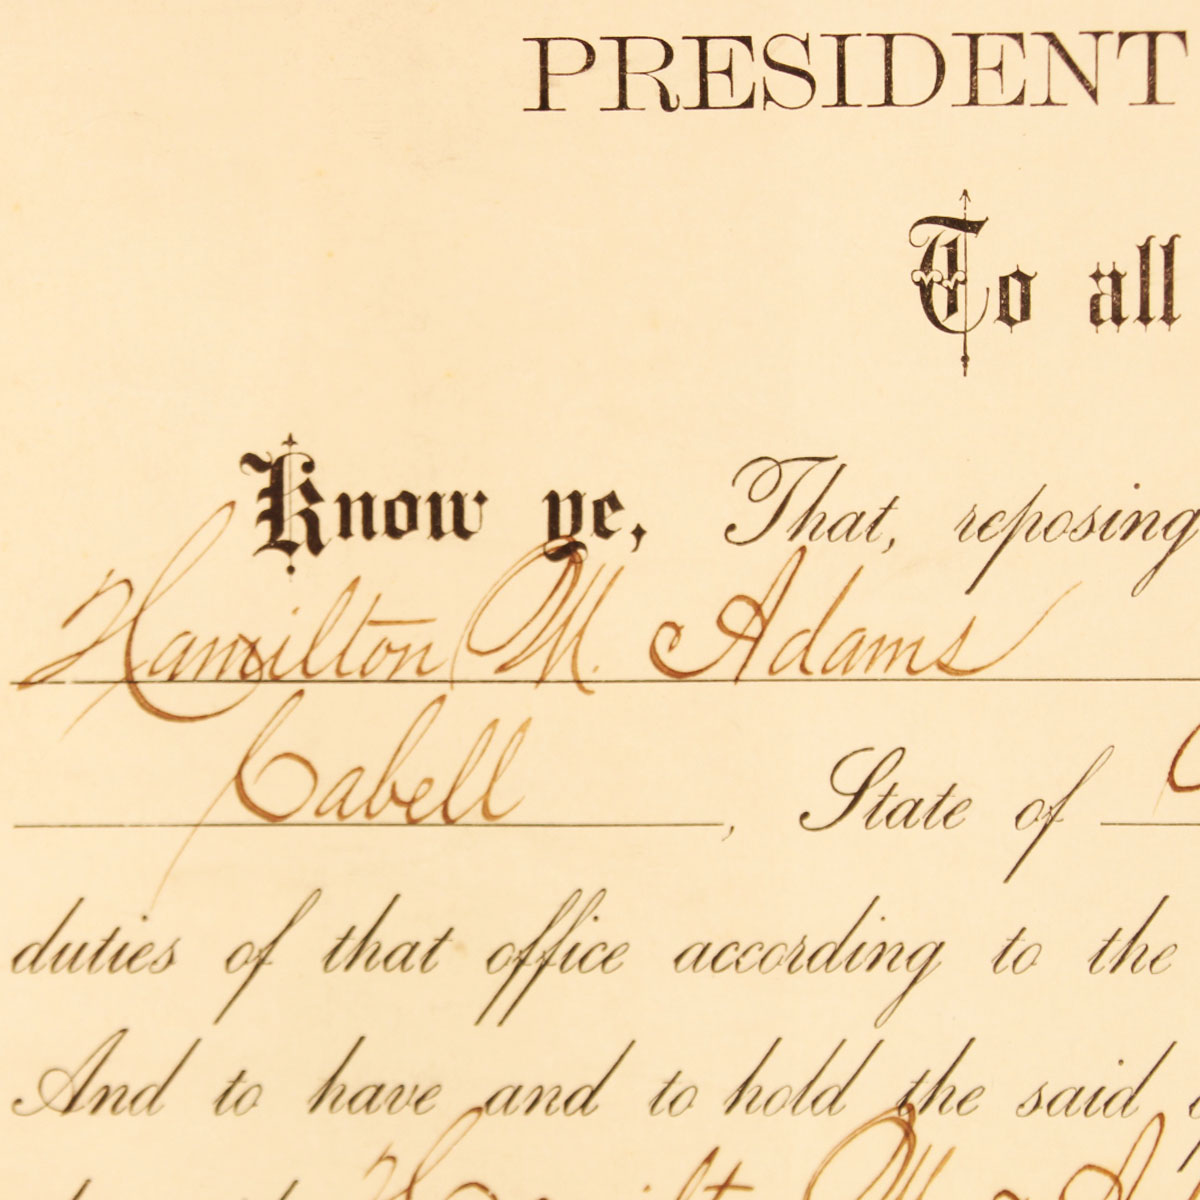 PRESIDENT
To all
Know ye, That, reposing
Hamilton M. Adams
Cabell, State of
duties of that office according to the
And to have and to hold the said
Hamilton M. A